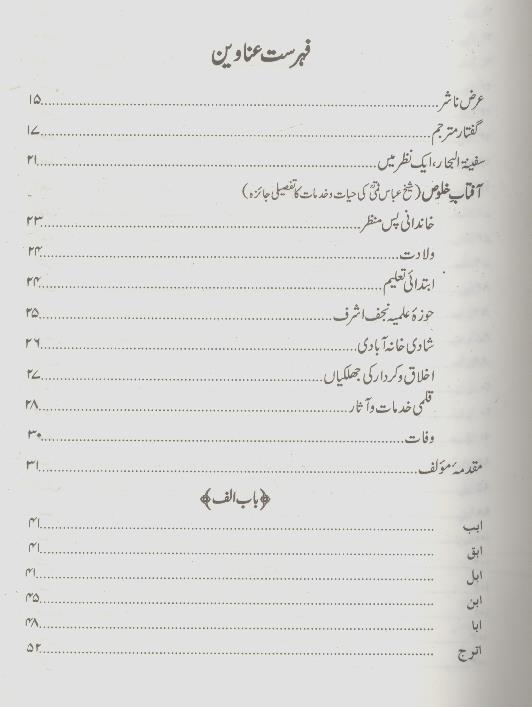 فہرست عناوین
عرض ناشر ۱۵
گفتار مترجم ۱۷
سفینۃ البحار، ایک نظر میں ۲۱
آفتابِ خلوص (شیخ عباس قمیؒ کی حیات و خدمات کا تفصیلی جائزہ)
خاندانی پس منظر ۲۳
ولادت ۲۴
ابتدائی تعلیم ۲۴
حوزۂ علمیہ نجف اشرف ۲۵
شادی خانہ آبادی ۲۶
اخلاق و کردار کی جھلکیاں ۲۷
قلمی خدمات و آثار ۲۸
وفات ۳۰
مقدمۂ مؤلف ۳۱
﴿باب الف﴾
ابب ۴۱
ابق ۴۱
ابل ۴۱
ابن ۴۵
ابا ۴۸
اترج ۵۲